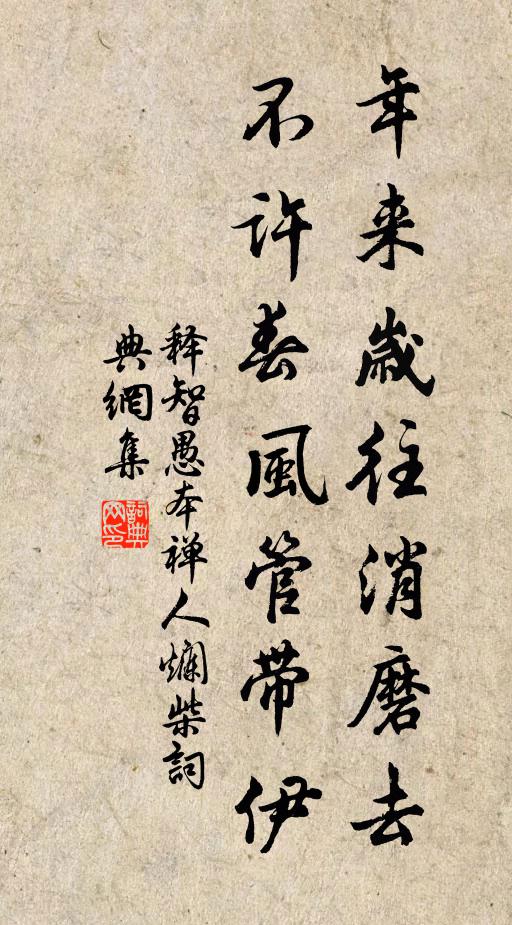 年来歲往消磨去
不許春風管带伊
释智愚本禅人爛柴詞
典網集
詞典
网印